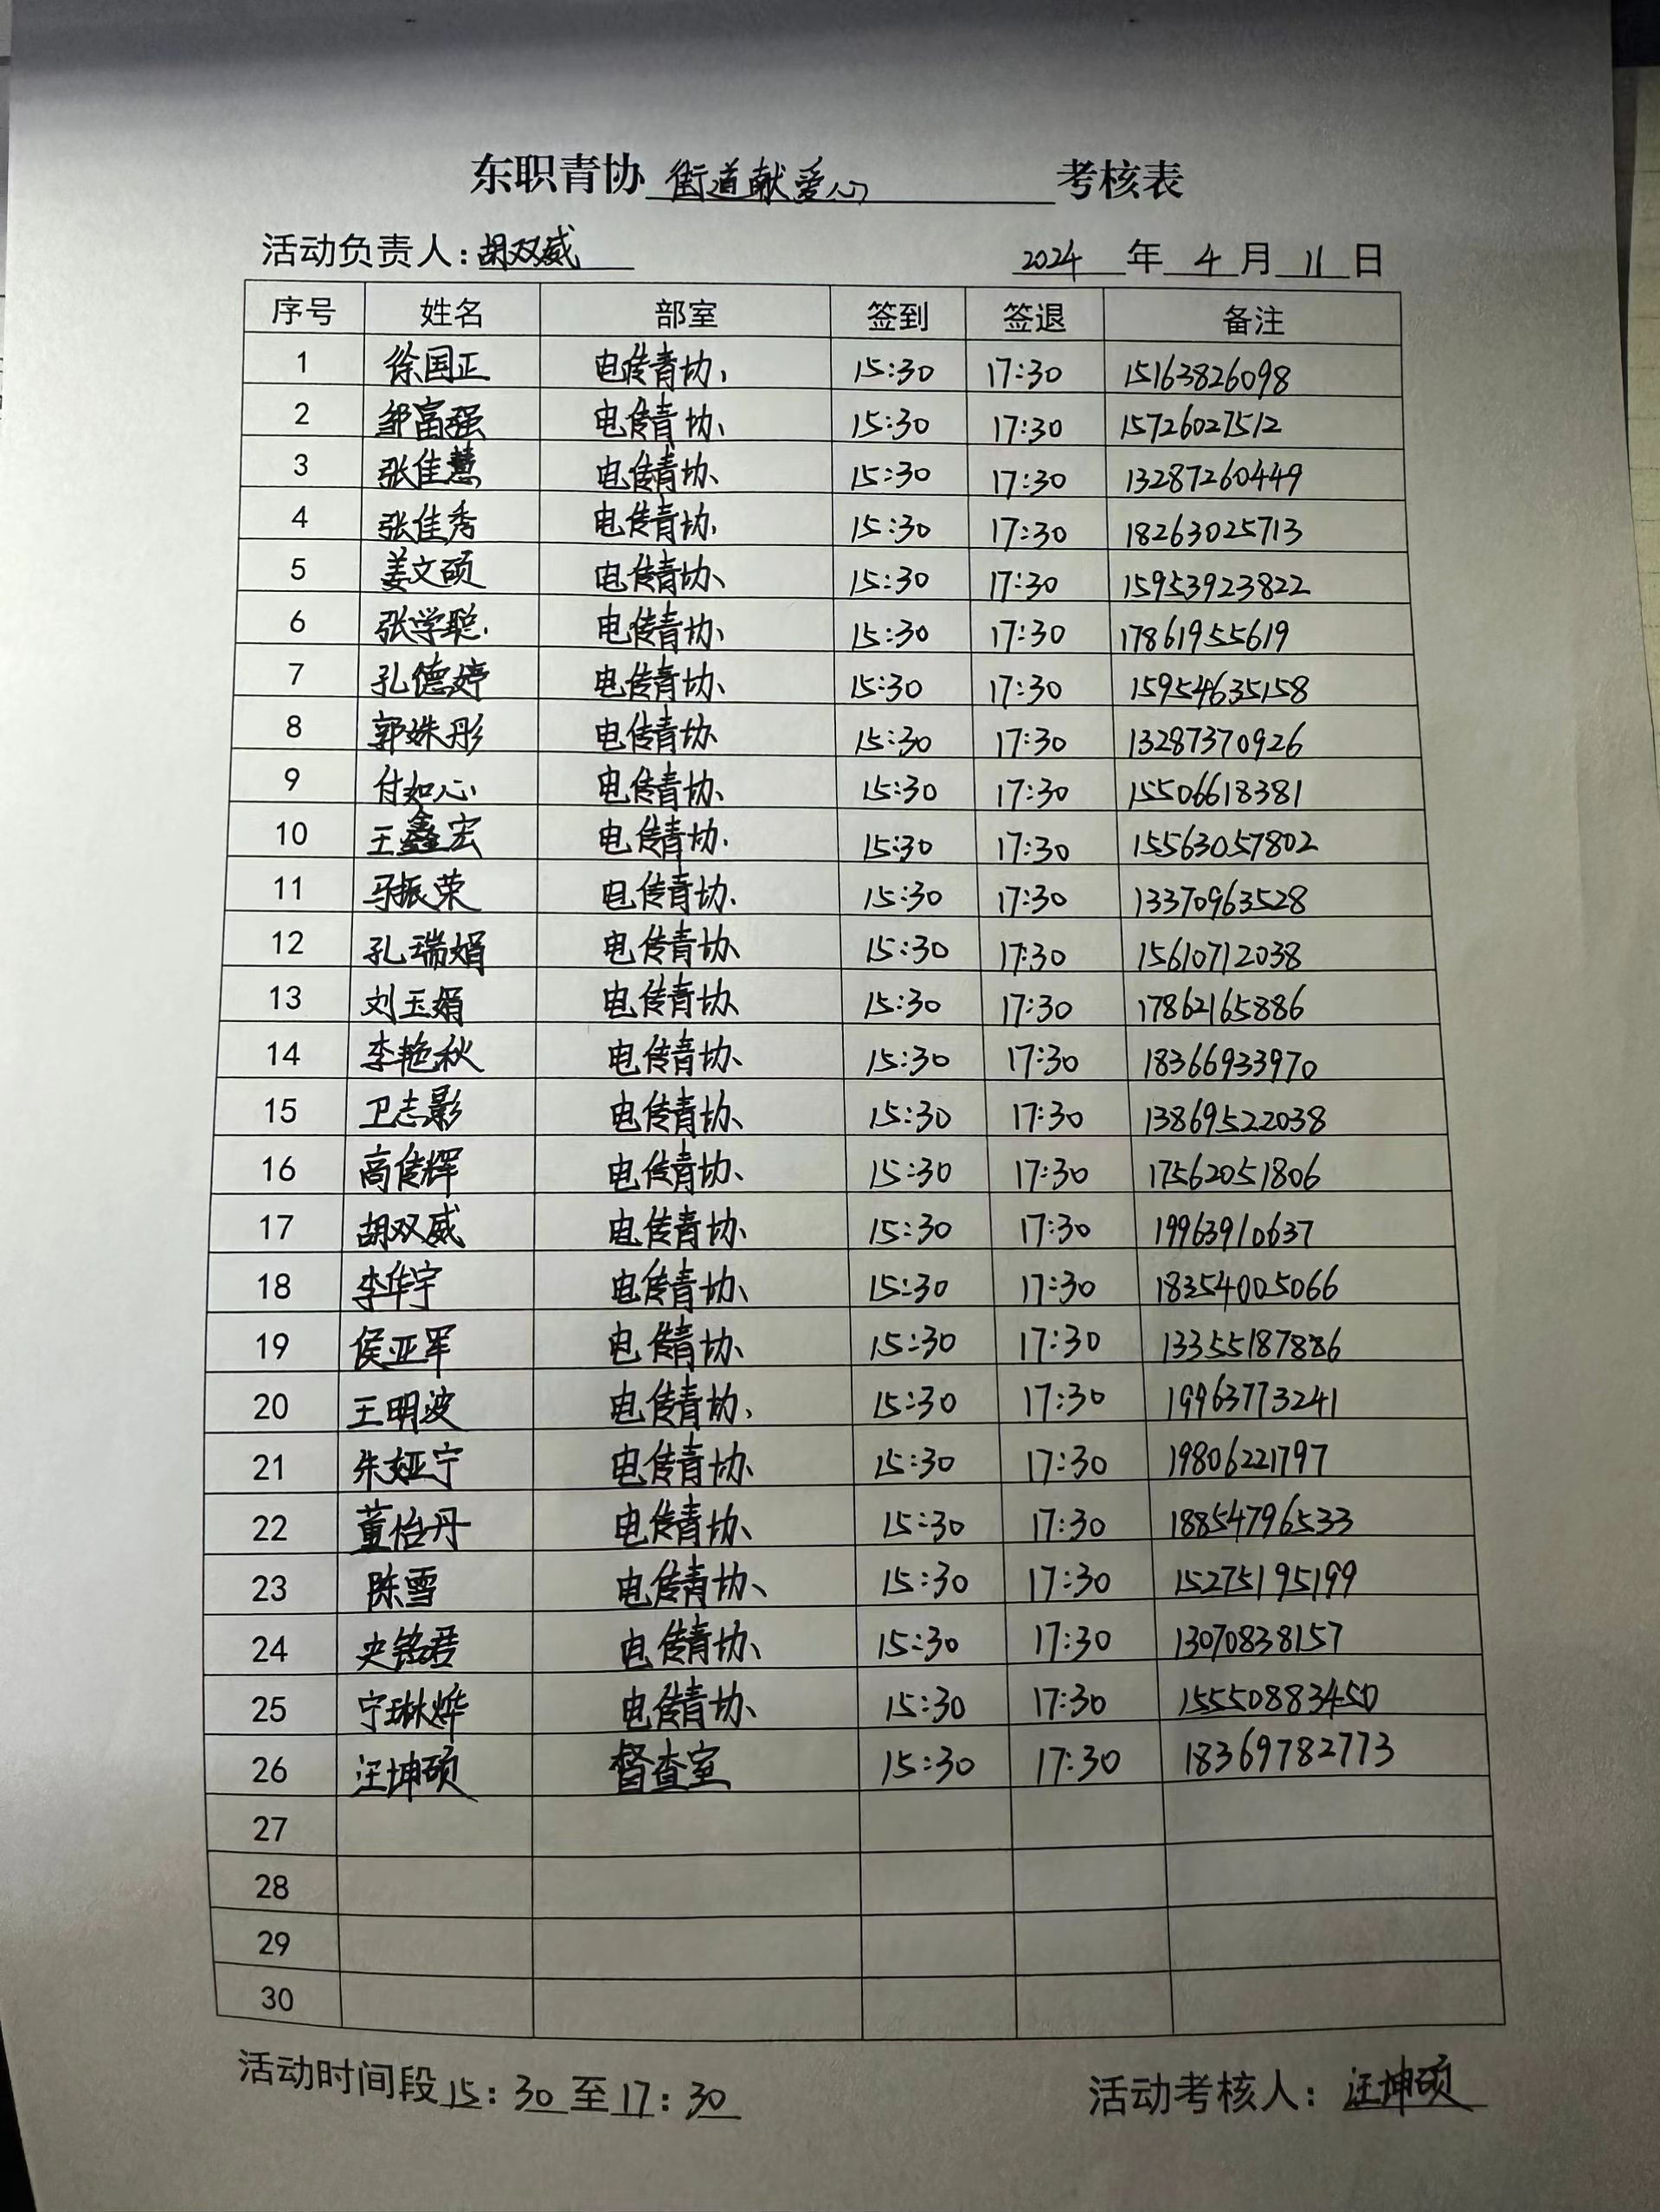 东职青协 街道献爱心 考核表
活动负责人：胡双威 2024 年 4 月 11 日
序号 姓名 部室 签到 签退 备注
1 徐国正 电传青协 15:30 17:30 15163826098
2 邹富强 电传青协 15:30 17:30 15726027512
3 张佳慧 电传青协 15:30 17:30 13287260449
4 张佳秀 电传青协 15:30 17:30 18263025713
5 姜文硕 电传青协 15:30 17:30 15953923822
6 张学聪 电传青协 15:30 17:30 17861955619
7 孔德婷 电传青协 15:30 17:30 15954635158
8 郭姝彤 电传青协 15:30 17:30 13287370926
9 付如心 电传青协 15:30 17:30 15506618381
10 王鑫宏 电传青协 15:30 17:30 15563057802
11 马振荣 电传青协 15:30 17:30 13370963528
12 孔瑞娟 电传青协 15:30 17:30 15610712038
13 刘玉娟 电传青协 15:30 17:30 17862165886
14 李艳秋 电传青协 15:30 17:30 18366933970
15 卫志影 电传青协 15:30 17:30 13869522038
16 高传辉 电传青协 15:30 17:30 17562051806
17 胡双威 电传青协 15:30 17:30 19963910637
18 李华宇 电传青协 15:30 17:30 18354005066
19 侯亚军 电传青协 15:30 17:30 13355187886
20 王明波 电传青协 15:30 17:30 19963773241
21 朱娅宁 电传青协 15:30 17:30 19806221797
22 董怡丹 电传青协 15:30 17:30 18854796533
23 陈雪 电传青协 15:30 17:30 15275195199
24 史铭君 电传青协 15:30 17:30 13070838157
25 宁琳烨 电传青协 15:30 17:30 15550883450
26 汪坤硕 督查室 15:30 17:30 18369782773
27
28
29
30
活动时间段 15：30 至 17：30 活动考核人：汪坤硕